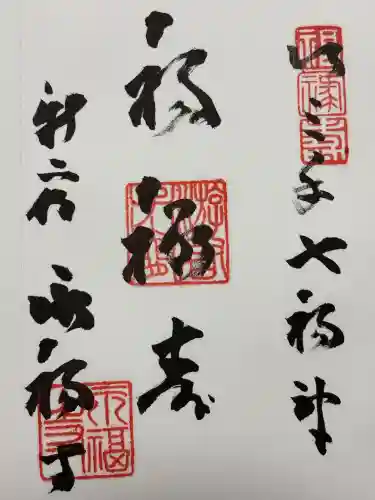 山之手七福神
福禄寿
新宿 永福寺